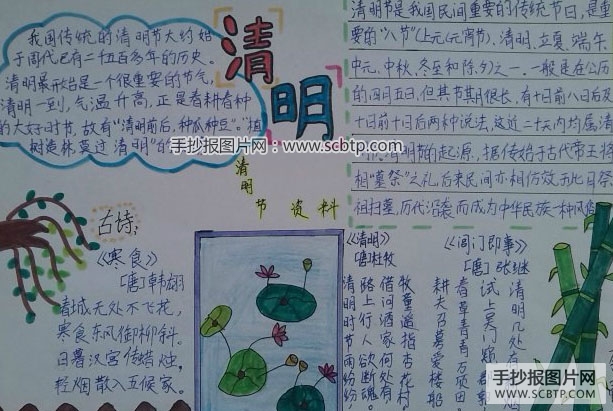 清明
我国传统的清明节大约始
于周代已有二千五百多年的历史。
清明最开始是一个很重要的节气
清明一到,气温升高,正是春耕春种
的大好时节,故有"清明前后,种瓜种豆"."植
树造林,莫过清明"的
清明节是我国民间重要的传统节日,是重
要的"八节"(上元(元宵节)、清明、立夏、端午、
中元、中秋、冬至和除夕)之一.一般是在公历
的四月五日,但其节期很长,有十日前八日后及
十日前十日后两种说法,这近二十天内均属清
节。清明节的起源,据传始于古代帝王将
相"墓祭"之礼,后来民间亦相仿效,于此日祭
祖扫墓,历代沿袭而成为中华民族一种风俗
手抄报图片网:www.scbtp.com
清明节资料
古诗:
《寒食》
[唐]韩翃
青城无处不飞花,
寒食东风御柳斜.
日暮汉宫传蜡烛,
轻烟散入五侯家.
《清明》
[唐]杜牧
清明时节雨纷纷
路上行人欲断魂
借问酒家何处有
牧童遥指杏花村
《阊门即事》
[唐]张继
耕夫召募爱楼船
春草青青万顷田
试上吴门窥郡
清明几处有
手抄报图片网
WWW.SCBTP.COM